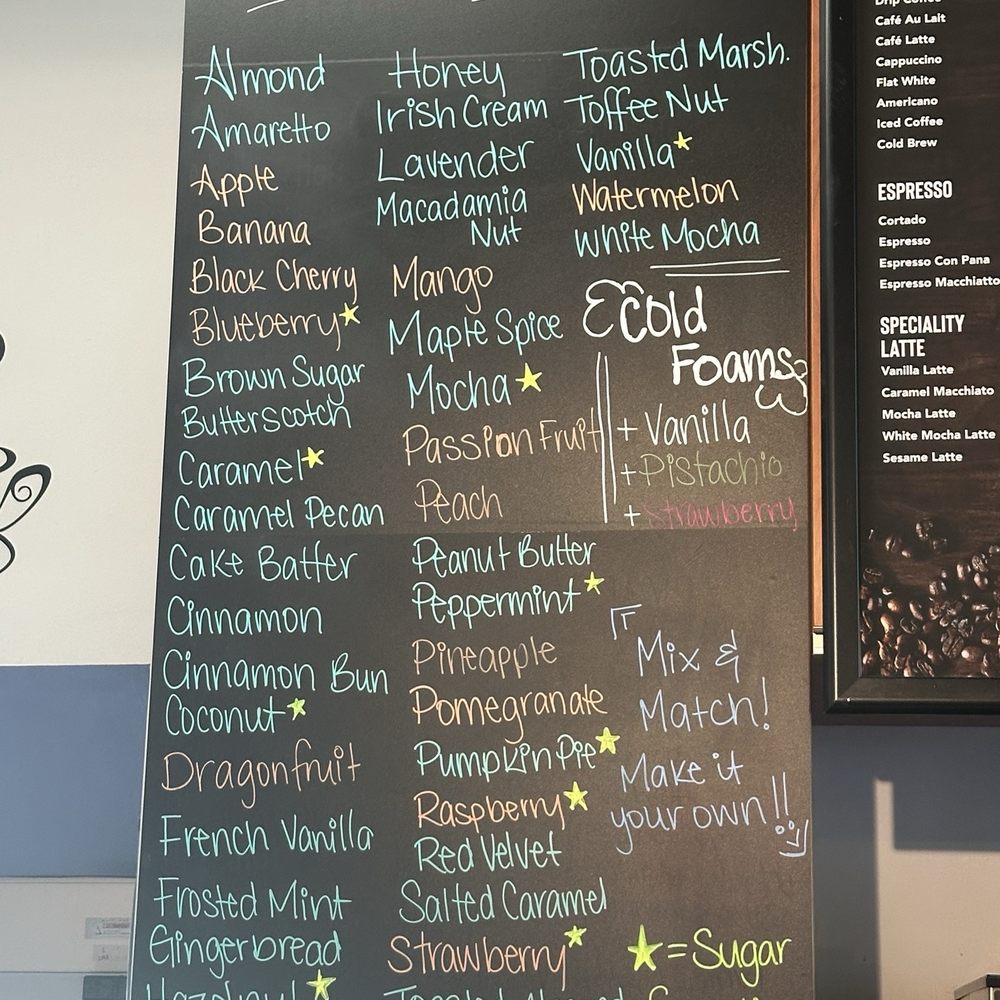 Almond
Amaretto
Apple
Banana
Black Cherry
Blueberry
Brown Sugar
Butterscotch
Caramel
Caramel Pecan
Cake Batter
Cinnamon
Cinnamon Bun
Coconut
Dragonfruit
French Vanilla
Frosted Mint
Gingerbread
Hazelnut
Honey
Irish Cream
Lavender
Macadamia
Nut
Mango
Maple Spice
Mocha
Passion Fruit
Peach
Peanut Butter
Peppermint
Pineapple
Pomegranate
Pumpkin Pie
Raspberry
Red Velvet
Salted Caramel
Strawberry
Toasted Almond
Toasted Marsh.
Toffee Nut
Vanilla
Watermelon
White Mocha
Cold
Foams
+ Vanilla
+ Pistachio
+ Strawberry
Mix &
Match!
Make it
your own!!
= Sugar
Drip Coffee
Café Au Lait
Café Latte
Cappuccino
Flat White
Americano
Iced Coffee
Cold Brew
ESPRESSO
Cortado
Espresso
Espresso Con Pana
Espresso Macchiatto
SPECIALITY
LATTE
Vanilla Latte
Caramel Macchiato
Mocha Latte
White Mocha Latte
Sesame Latte